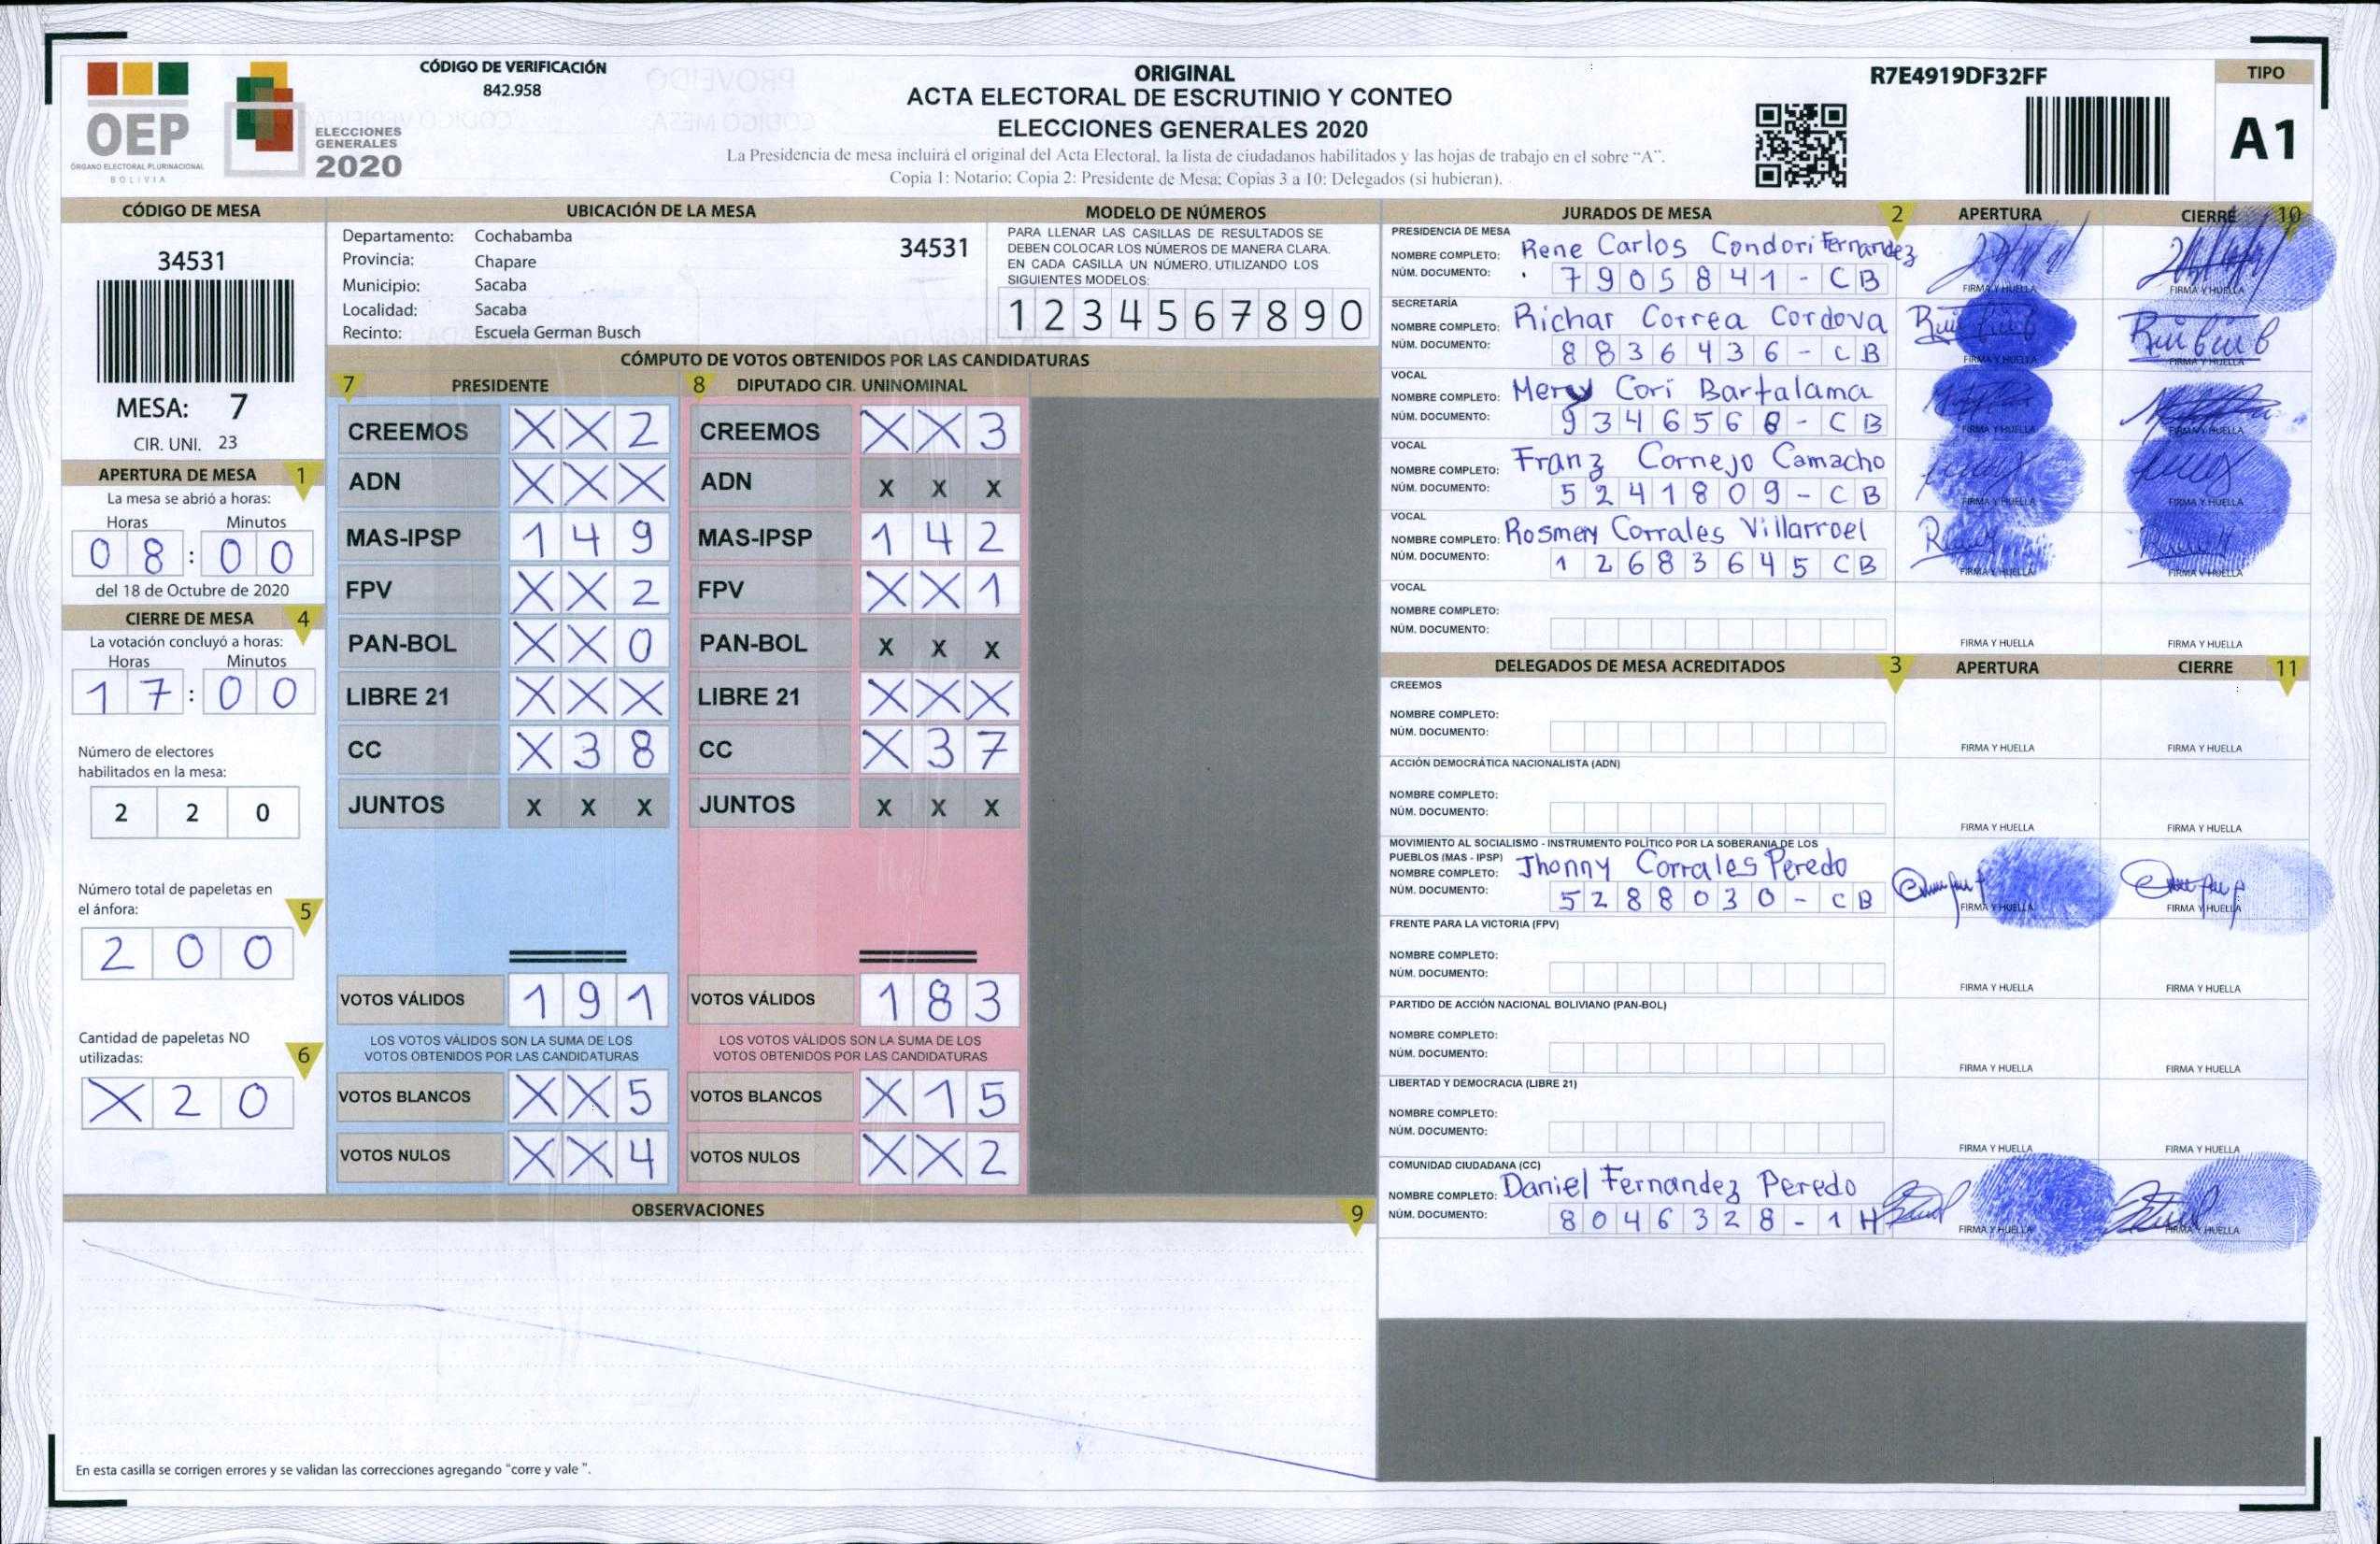 OEP
ÓRGANO ELECTORAL PLURINACIONAL
BOLIVIA
ELECCIONES
GENERALES
2020
CÓDIGO DE VERIFICACIÓN
842.958
ORIGINAL
ACTA ELECTORAL DE ESCRUTINIO Y CONTEO
ELECCIONES GENERALES 2020
La Presidencia de mesa incluirá el original del Acta Electoral, la lista de ciudadanos habilitados y las hojas de trabajo en el sobre "A".
Copia 1: Notario; Copia 2: Presidente de Mesa; Copias 3 a 10: Delegados (si hubieran).
R7E4919DF32FF
TIPO
A1
CÓDIGO DE MESA
34531
MESA: 7
CIR. UNI. 23
APERTURA DE MESA 1
La mesa se abrió a horas:
Horas Minutos
08:00
del 18 de Octubre de 2020
CIERRE DE MESA 4
La votación concluyó a horas:
Horas Minutos
17:00
Número de electores
habilitados en la mesa:
2 2 0
Número total de papeletas en
el ánfora: 5
2 0 0
Cantidad de papeletas NO
utilizadas: 6
X 2 0
UBICACIÓN DE LA MESA
Departamento: Cochabamba 34531
Provincia: Chapare
Municipio: Sacaba
Localidad: Sacaba
Recinto: Escuela German Busch
MODELO DE NÚMEROS
PARA LLENAR LAS CASILLAS DE RESULTADOS SE
DEBEN COLOCAR LOS NÚMEROS DE MANERA CLARA.
EN CADA CASILLA UN NÚMERO, UTILIZANDO LOS
SIGUIENTES MODELOS:
1 2 3 4 5 6 7 8 9 0
CÓMPUTO DE VOTOS OBTENIDOS POR LAS CANDIDATURAS
7 PRESIDENTE 8 DIPUTADO CIR. UNINOMINAL
CREEMOS X X 2 CREEMOS X X 3
ADN X X X ADN X X X
MAS-IPSP 1 4 9 MAS-IPSP 1 4 2
FPV X X 2 FPV X X 1
PAN-BOL X X 0 PAN-BOL X X X
LIBRE 21 X X X LIBRE 21 X X X
CC X 3 8 CC X 3 7
JUNTOS X X X JUNTOS X X X
VOTOS VÁLIDOS 1 9 1 VOTOS VÁLIDOS 1 8 3
LOS VOTOS VÁLIDOS SON LA SUMA DE LOS LOS VOTOS VÁLIDOS SON LA SUMA DE LOS
VOTOS OBTENIDOS POR LAS CANDIDATURAS VOTOS OBTENIDOS POR LAS CANDIDATURAS
VOTOS BLANCOS X X 5 VOTOS BLANCOS X 1 5
VOTOS NULOS X X 4 VOTOS NULOS X X 2
OBSERVACIONES 9
En esta casilla se corrigen errores y se validan las correcciones agregando "corre y vale ".
JURADOS DE MESA 2 APERTURA CIERRE 10
PRESIDENCIA DE MESA
NOMBRE COMPLETO: Rene Carlos Condori Fernandez
NÚM. DOCUMENTO: 7905841-CB
FIRMA Y HUELLA FIRMA Y HUELLA
SECRETARÍA
NOMBRE COMPLETO: Richar Correa Cordova
NÚM. DOCUMENTO: 8836436-CB
FIRMA Y HUELLA FIRMA Y HUELLA
VOCAL
NOMBRE COMPLETO: Mery Cori Bartalama
NÚM. DOCUMENTO: 9346568-CB
FIRMA Y HUELLA FIRMA Y HUELLA
VOCAL
NOMBRE COMPLETO: Franz Cornejo Camacho
NÚM. DOCUMENTO: 5241809-CB
FIRMA Y HUELLA FIRMA Y HUELLA
VOCAL
NOMBRE COMPLETO: Rosmery Corrales Villarroel
NÚM. DOCUMENTO: 12683645CB
FIRMA Y HUELLA FIRMA Y HUELLA
VOCAL
NOMBRE COMPLETO:
NÚM. DOCUMENTO:
FIRMA Y HUELLA FIRMA Y HUELLA
DELEGADOS DE MESA ACREDITADOS 3 APERTURA CIERRE 11
CREEMOS
NOMBRE COMPLETO:
NÚM. DOCUMENTO:
FIRMA Y HUELLA FIRMA Y HUELLA
ACCIÓN DEMOCRÁTICA NACIONALISTA (ADN)
NOMBRE COMPLETO:
NÚM. DOCUMENTO:
FIRMA Y HUELLA FIRMA Y HUELLA
MOVIMIENTO AL SOCIALISMO - INSTRUMENTO POLÍTICO POR LA SOBERANIA DE LOS
PUEBLOS (MAS - IPSP)
NOMBRE COMPLETO: Jhonny Corrales Peredo
NÚM. DOCUMENTO: 5288030-CB
FIRMA Y HUELLA FIRMA Y HUELLA
FRENTE PARA LA VICTORIA (FPV)
NOMBRE COMPLETO:
NÚM. DOCUMENTO:
FIRMA Y HUELLA FIRMA Y HUELLA
PARTIDO DE ACCIÓN NACIONAL BOLIVIANO (PAN-BOL)
NOMBRE COMPLETO:
NÚM. DOCUMENTO:
FIRMA Y HUELLA FIRMA Y HUELLA
LIBERTAD Y DEMOCRACIA (LIBRE 21)
NOMBRE COMPLETO:
NÚM. DOCUMENTO:
FIRMA Y HUELLA FIRMA Y HUELLA
COMUNIDAD CIUDADANA (CC)
NOMBRE COMPLETO: Daniel Fernandez Peredo
NÚM. DOCUMENTO: 8046328-1H
FIRMA Y HUELLA FIRMA Y HUELLA